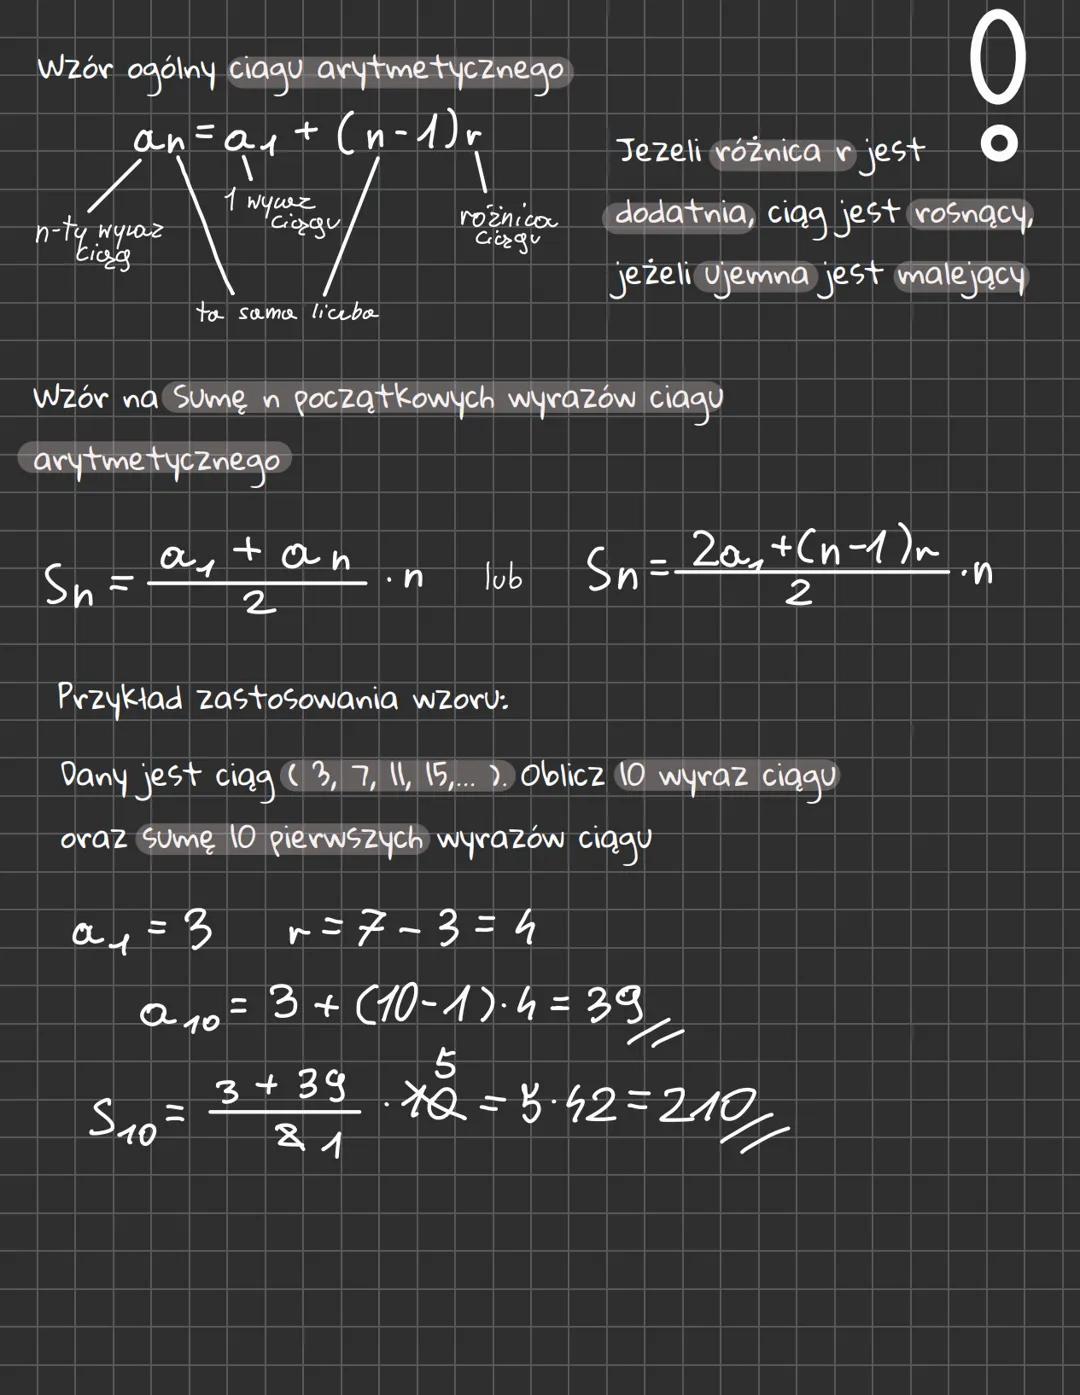 Wzór ogólny ciągu arytmetycznego
an = a₁ + (n-1)r
n-ty wyraz
ciąg
1 wyraz
ciągu
różnica
ciągu
ta sama liczba
Jezeli różnica r jest
dodatnia, ciąg jest rosnący,
jeżeli ujemna jest malejący
Wzór na sumę n początkowych wyrazów ciagu
arytmetycznego
Sn = (a₁ + an)/2 · n lub Sn = (2a₁ + (n-1)r)/2 · n
Przykład zastosowania wzoru:
Dany jest ciąg ( 3, 7, 11, 15,... ). Oblicz 10 wyraz ciągu
oraz sumę 10 pierwszych wyrazów ciągu
a₁ = 3 r = 7 - 3 = 4
a₁₀ = 3 + (10-1)·4 = 39
5
S₁₀ = (3 + 39)/2 1 · 10 = 5·42 = 210